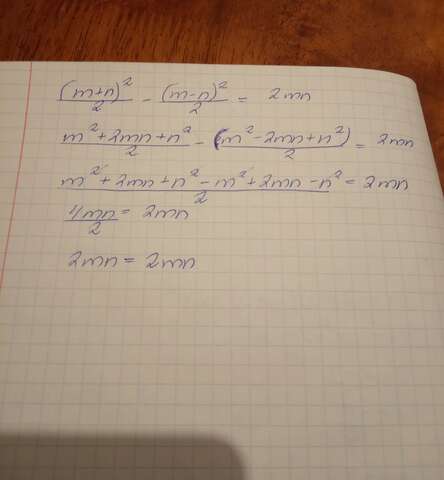 (m+n)²/2 - (m-n)²/2 = 2mn
m²+2mn+n²/2 - (m²-2mn+n²)/2 = 2mn
m²+2mn+n²-m²+2mn-n²/2 = 2mn
4mn/2 = 2mn
2mn = 2mn